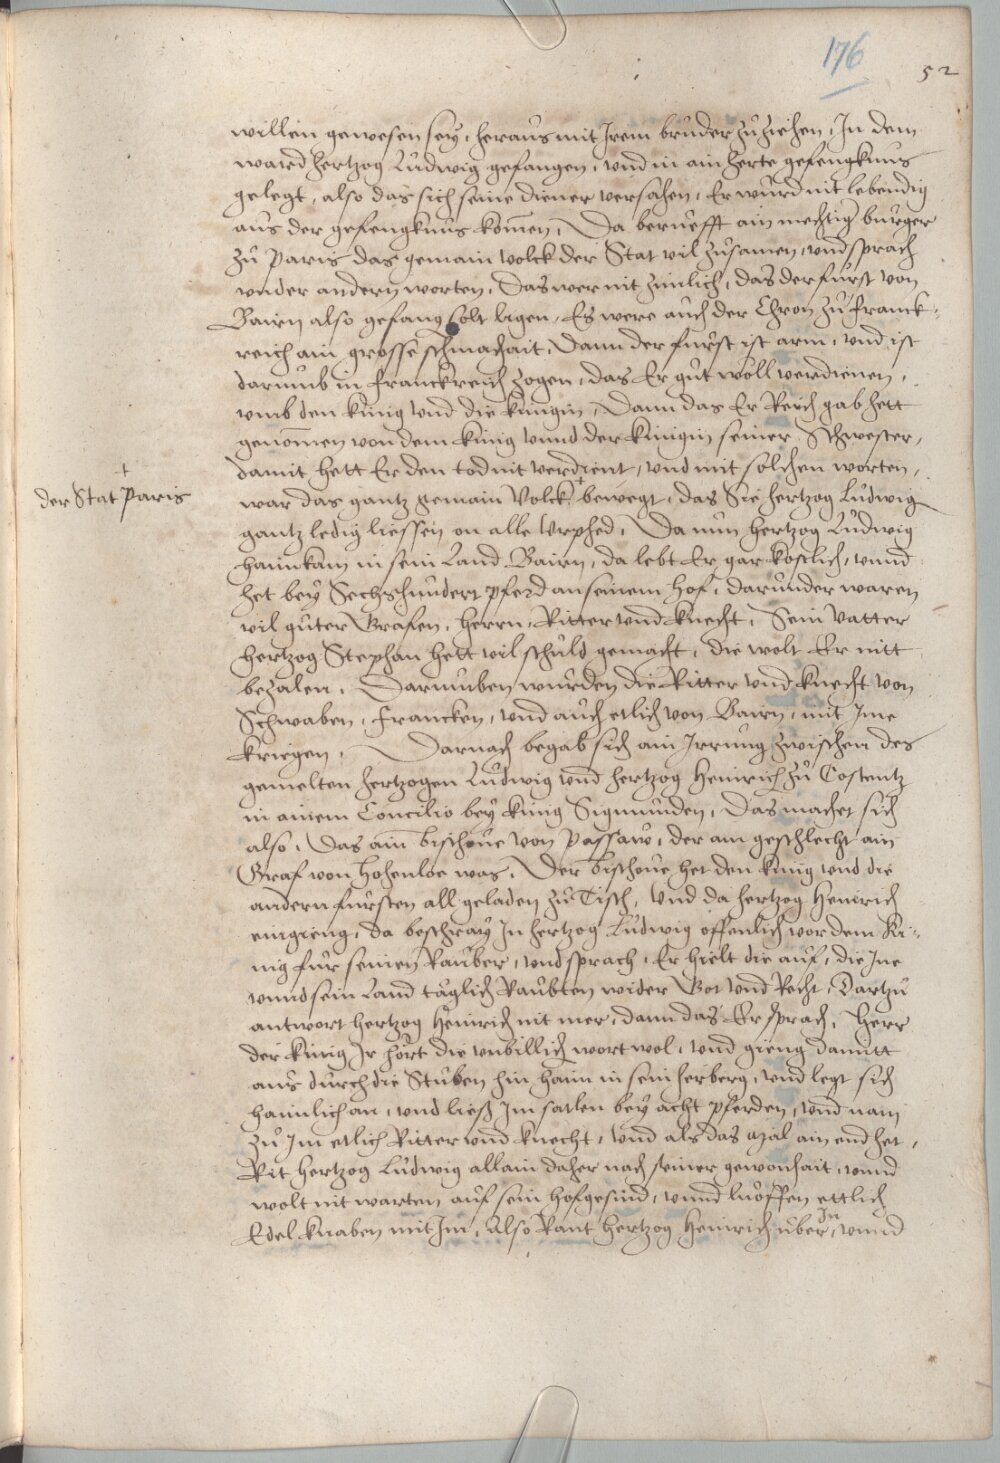 176
52
willen gewesen seÿ, heraus mit Irem bruder zuziehen, In dem
ward Hertzog Ludwig gefangen, vnd in ain herte gefengknus
gelegt, also das sich seine diener versahen, Er wurd nit lebendig
aus der gefengknus komen, Da beruefft ain mechtig burger
zu Paris das gemain volck der Stat vil zusamen, vnd sprach
vnder andern worten, Das wer nit zimlich, das der furst von
Bairn also gefang solt ligen, Es were auch der Chron zu Franck-
reich ain grosse schmachait, Dann der furst ist arm, vnd ist
darumb in Franckreich zogen, das Er gut wöll verdienen,
vmb den künig vnd die künigin, Dann das Er Reich gab hett
genomen von dem künig vnnd der künigin seiner Schwester,
damit hett Er den tod nit verdient, vnd mit solchen worten,
+
der Stat Paris
war das gantz gemain Volck + bewegt, das Sie hertzog Ludwig
gantz ledig liessen on alle Vrphed, Da nun Hertzog Ludwig
haimkam in sein Land Bairn, da lebt Er gar köstlich, vnnd
het beÿ Sechshundert pferd an seinem Hof, darunder waren
vil guter Grafen, Herrn, Ritter vnd knecht, Sein Vatter
Hertzog Stephan hett vil schuld gemacht, die wolt Er nitt
bezalen, Darumben wurden die Ritter vnd knecht von
Schwaben, Francken, vnd auch etlich von Bairn, mit Ime
kriegen, Darnach begab sich ain Irrung zwischen des
gemelten hertzogen Ludwig vnd hertzog Heinrich zu Costentz
in ainem Concilio beÿ künig Sigmunden, Das machet sich
also, Das ain bischoue von Passaw, der am geschlecht ain
Graf von Hohenloe was, Der bischoue het den künig vnd die
andern fursten all geladen zu Tisch, Vnd da hertzog Heinrich
eingieng, da beschraÿ In hertzog Ludwig offenlich vor dem kü-
nig fur seinen Rauber, vnd sprach, Er hielt die auf, die Ine
vnnd sein Land täglich Raubten wider Got vnd Recht, Dartzu
antwort hertzog Heinrich nit mer, dann das Er sprach, Herr
der künig Ir hört die vnbillich wort wol, vnd gieng damitt
aus durch die Stuben hin haim in sein herberg, vnd legt sich
haimlich an, vnd ließ Im satlen beÿ acht pferden, vnd nam
zu Im etlich Ritter vnd knecht, vnd als das mal ain end het,
Rit hertzog Ludwig allain daher nach seiner gewonhait, vnnd
wolt nit warten auf sein hofgesind, vnnd luöffen ettlich
Edel knaben mit Im, Also Rant hertzog Heinrich über In, vnnd